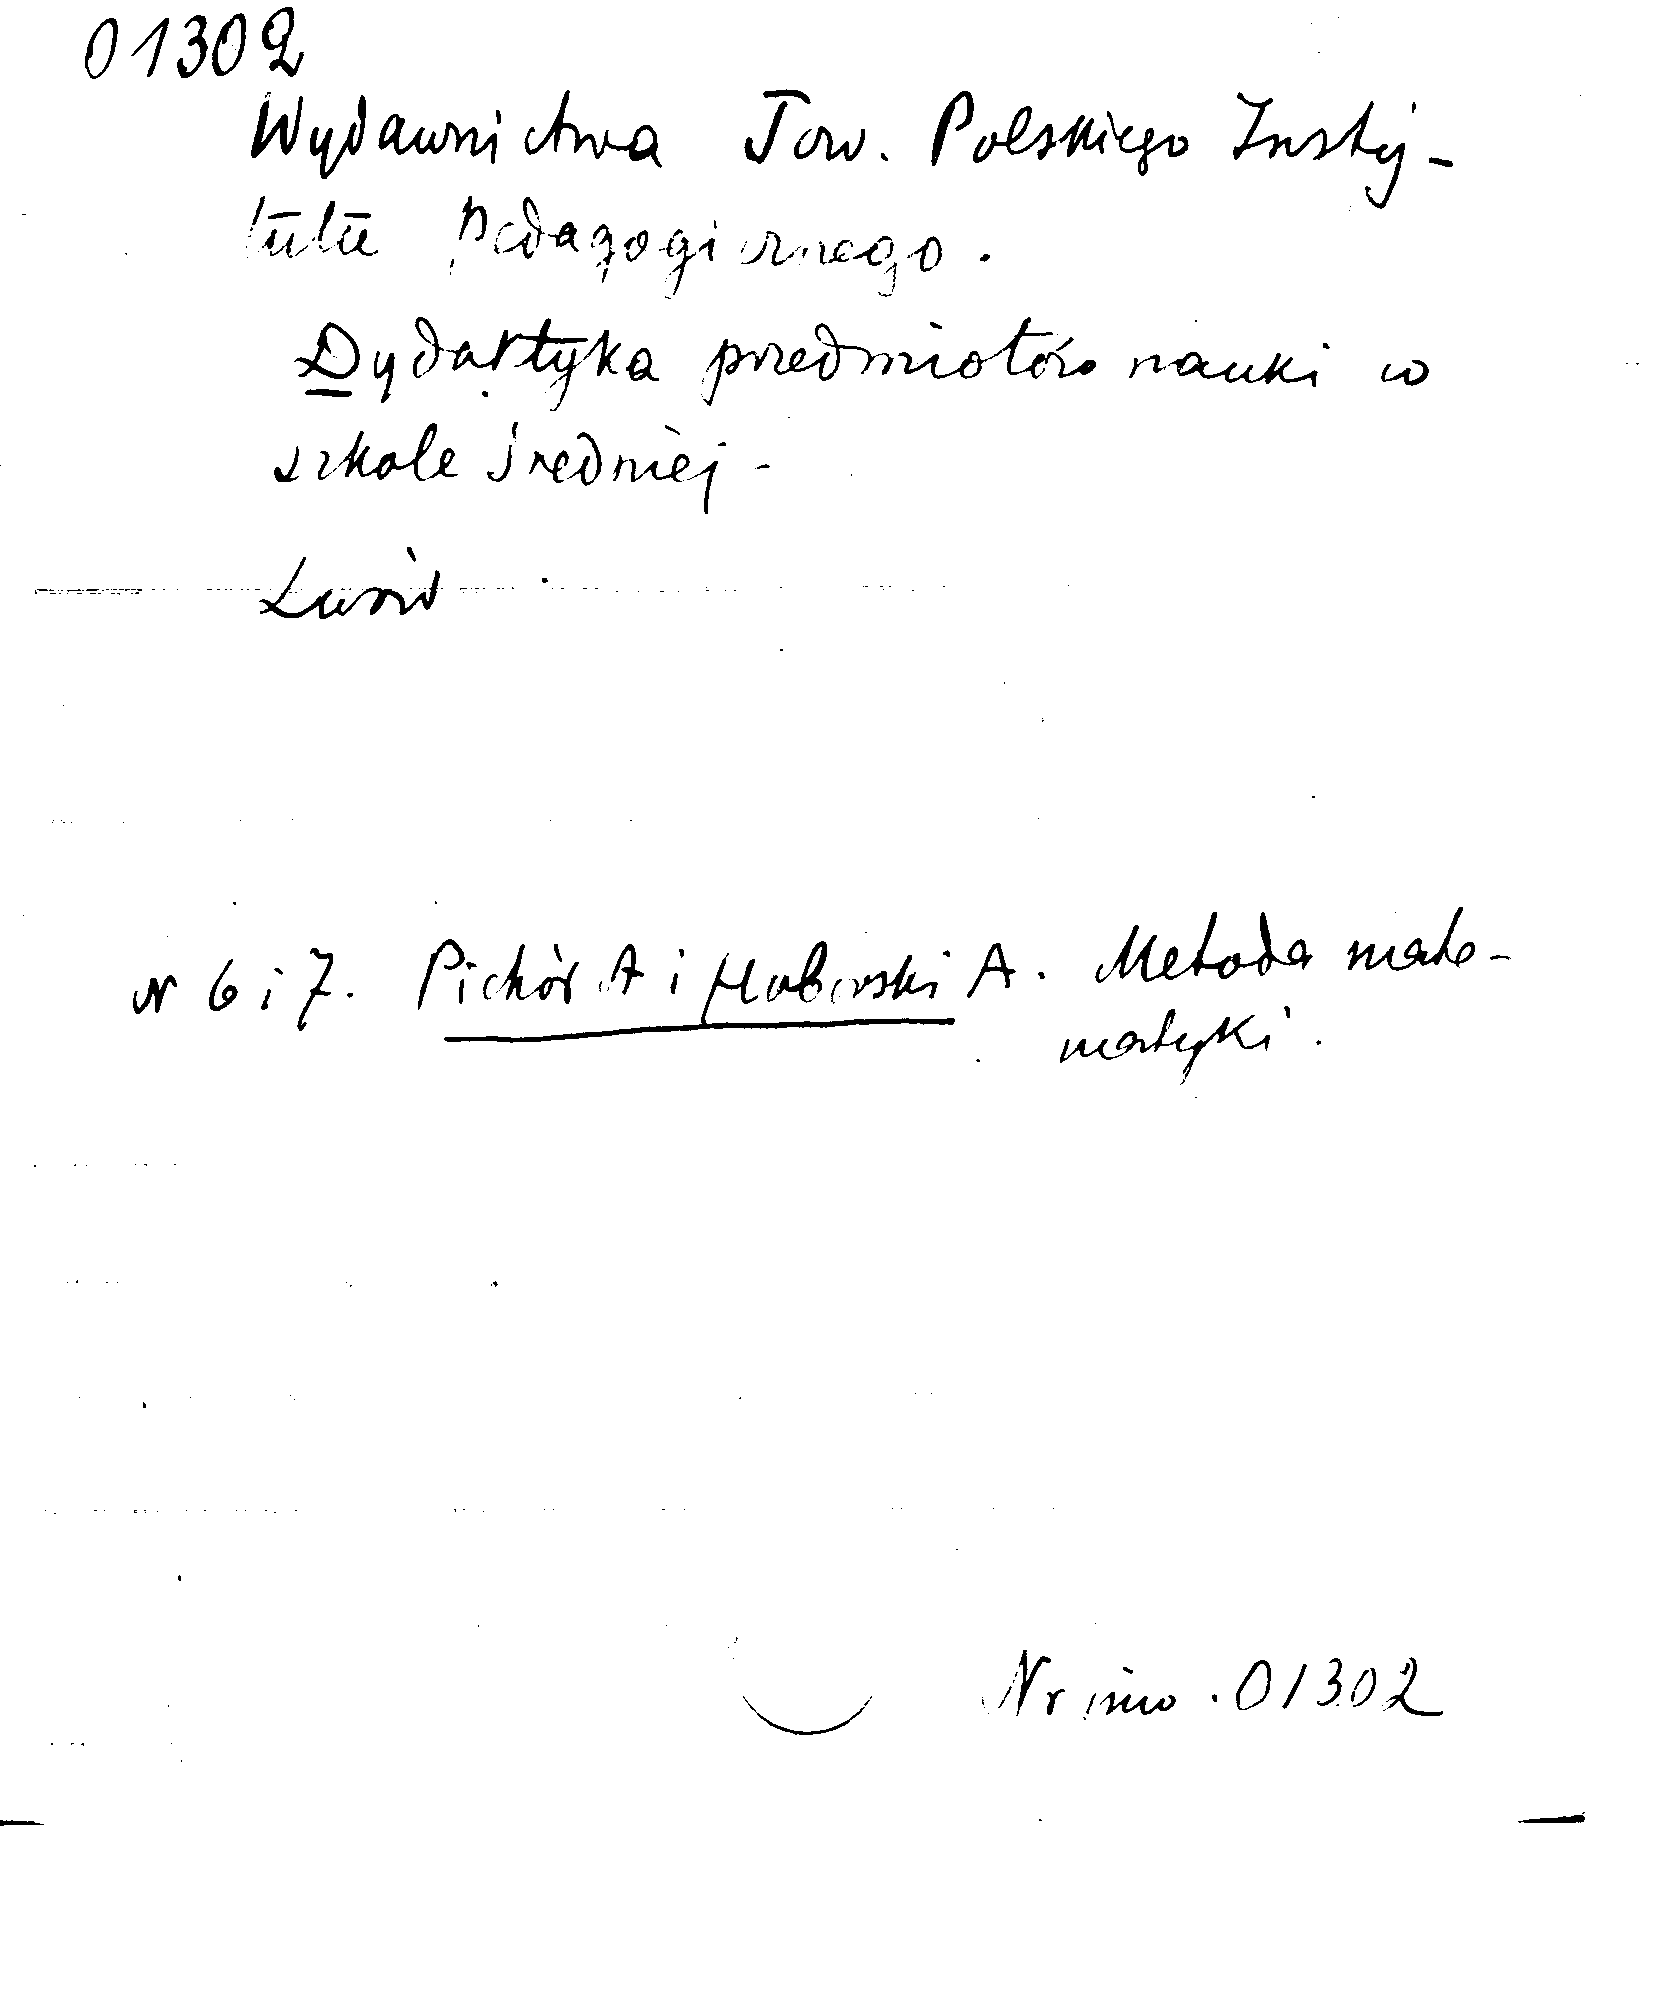 01302
Wydawnictwa Tow. Polskiego Insty-
tutu Pedagogicznego.
Dydaktyka przedmiotów nauki w
szkole średniej -
Lwów
N 6 i 7. Pichór A i Hoborski A. Metoda mate-
matyki.
Nr inw. 01302